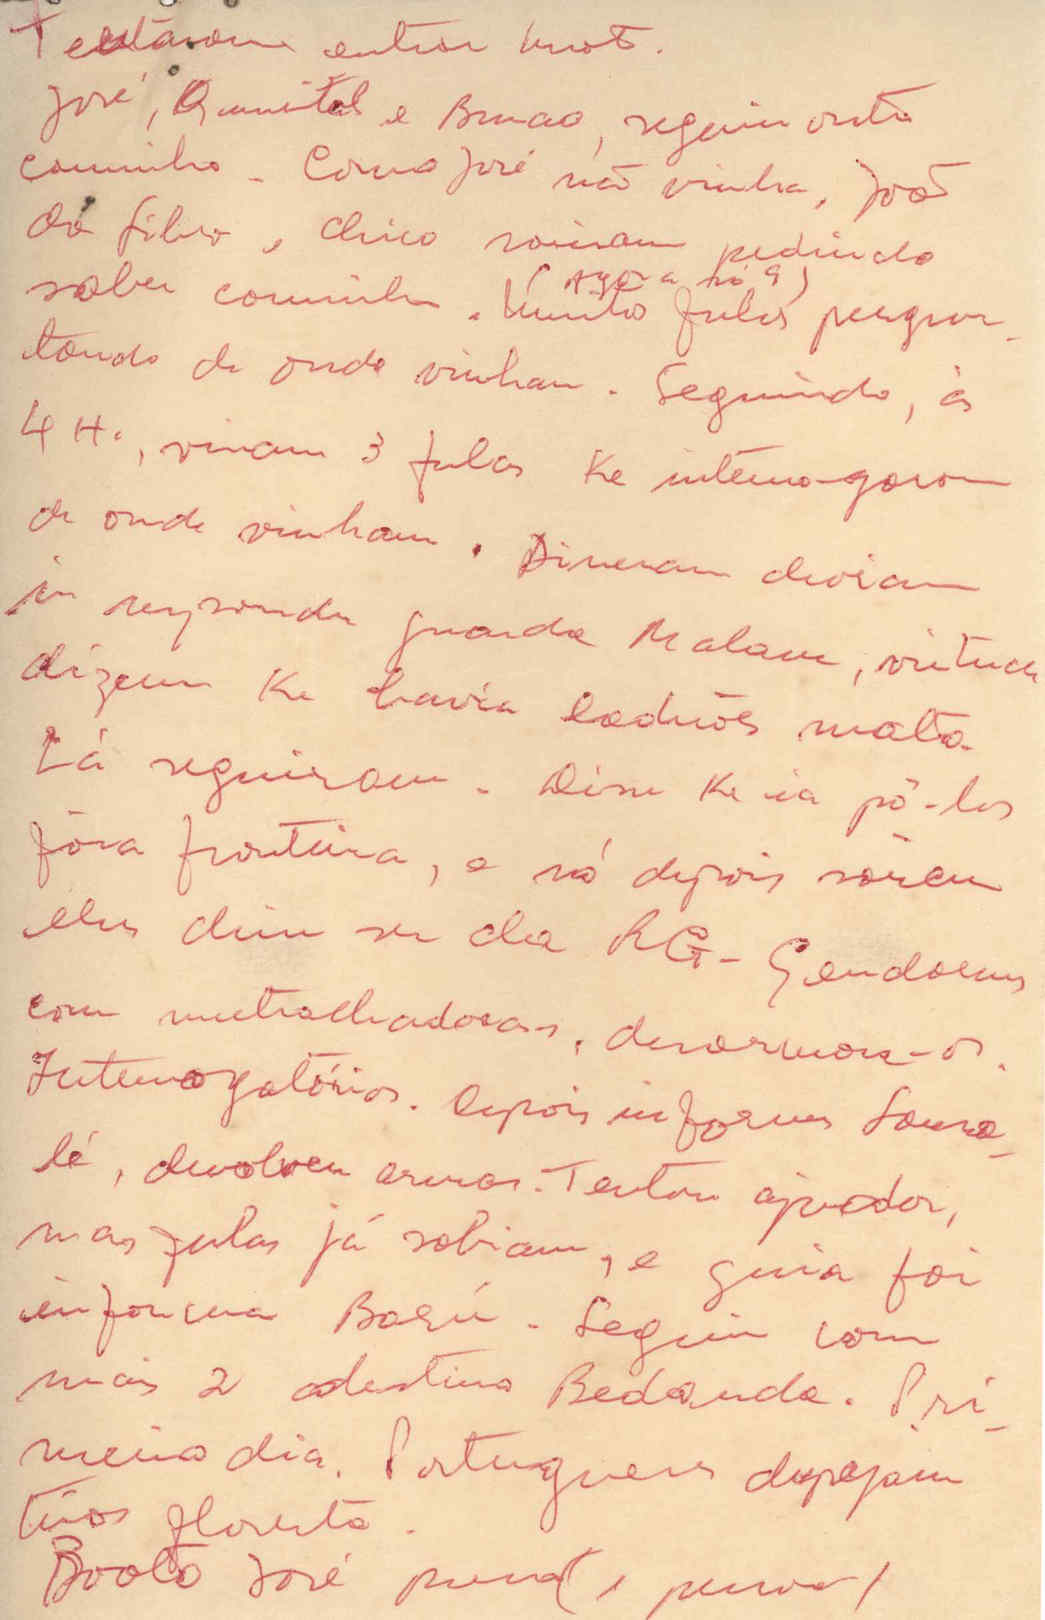 Tentaram entrar mato.
José, Quintal e Bunca, seguiu outro
caminho. Como José não vinha, João
da Silva e Chico saíram pedindo
saber caminho. (Agora há 9)
Muitos fulas pergun-
tando de onde vinham. Seguindo, às
4 H., viram 3 fulas ke interrogaram
de onde vinham. Disseram deviam
ir responder guarda Malam, virtude
dizem ke havia ladrões mato.
Lá seguiram. Disse ke ia pô-los
fóra fronteira, e só depois
eles dim ser da RG - Gendarmes
com metralhadoras, desarmou-os.
Interrogatórios. Depois informes
lé, devolveu armas. Tentou ajudar,
mas fulas já sabiam, e guia foi
informar Boké. Seguiu com
mais 2 destino Bedanda. Pri-
meiro dia. Portugueses despejam
tiros floresta.
Boato José preso (1 pessoa)